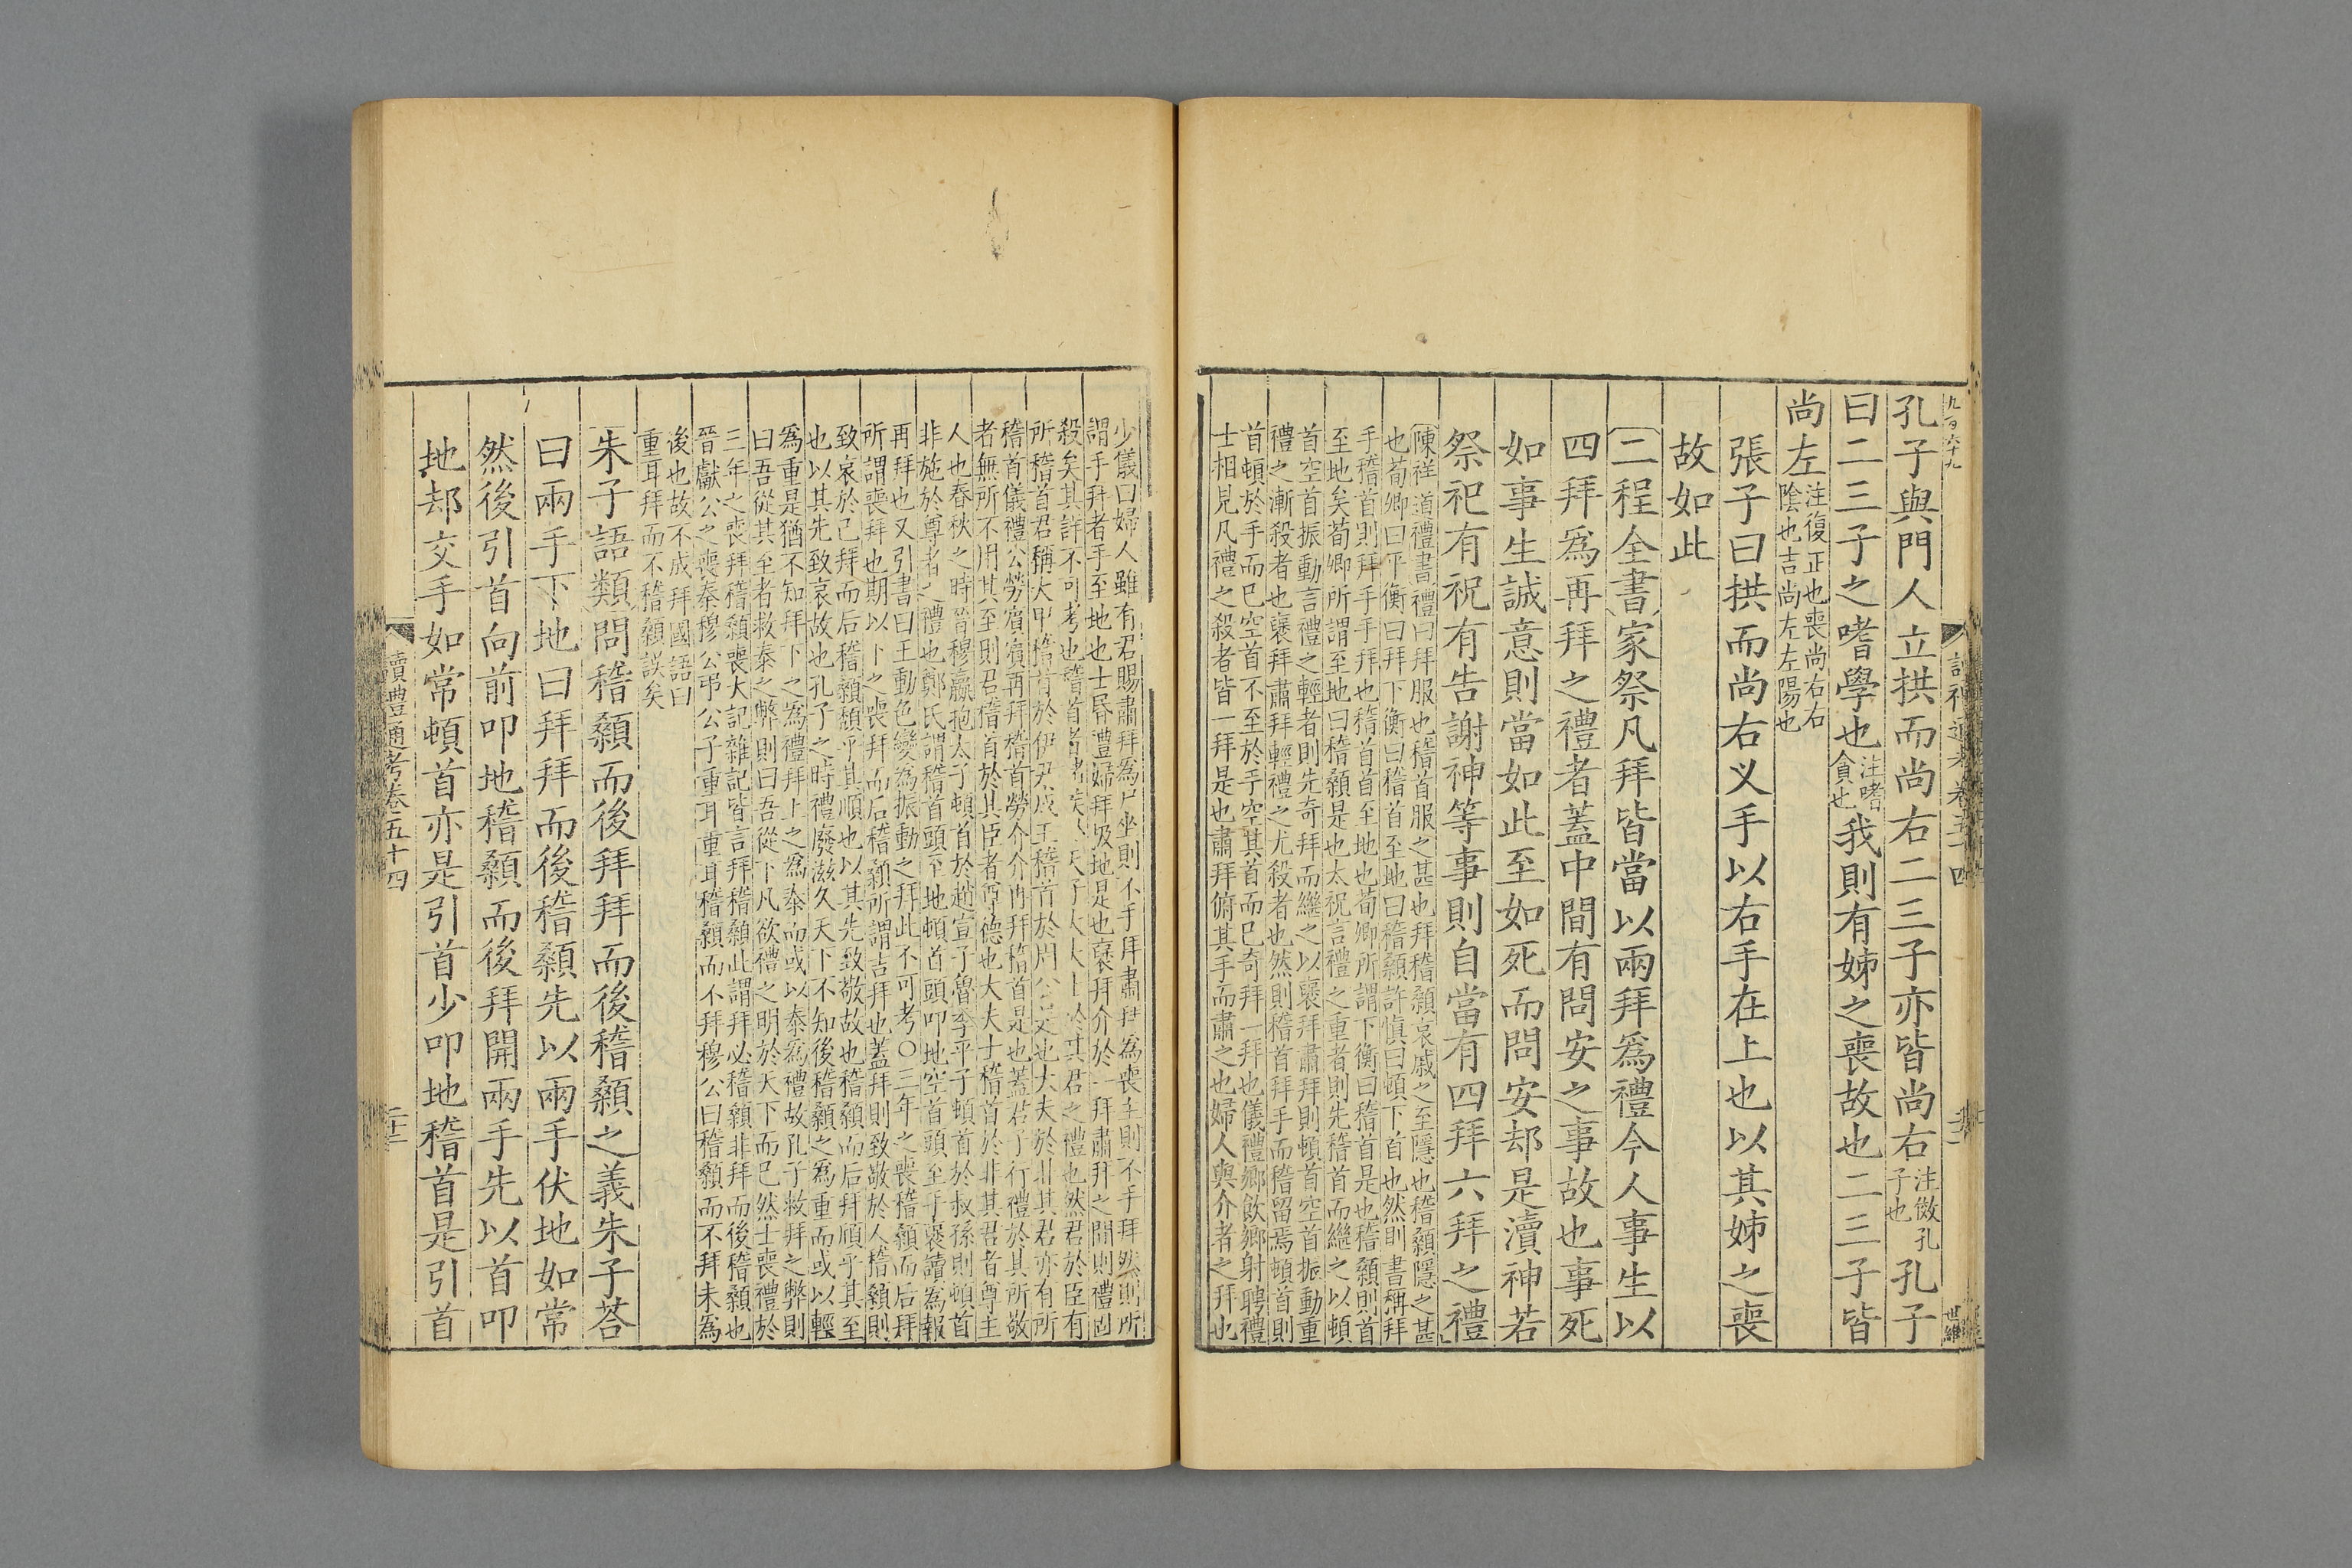 九百六十九
孔子與門人立拱而尚右二三子亦皆尚右注傚孔子也孔子
曰二三子之嗜學也注嗜貪也我則有姊之喪故也二三子皆
尚左注復正也喪尚右右陰也吉尚左左陽也
張子曰拱而尚右义手以右手在上也以其姊之喪
故如此
二程全書家祭凡拜皆當以兩拜爲禮今人事生以
四拜爲再拜之禮者蓋中間有問安之事故也事死
如事生誠意則當如此至如死而問安却是瀆神若
祭祀有祝有告謝神等事則自當有四拜六拜之禮
陳祥道禮書禮曰拜服也稽首服之甚也拜稽顙哀戚之至隱也稽顙隱之甚
也荀卿曰平衡曰拜下衡曰稽首至地曰稽顙許慎曰頓下首也然則書稱拜
手稽首則拜手手拜也稽首首至地也荀卿所謂下衡曰稽首是也稽顙則首
至地矣荀卿所謂至地曰稽顙是也太祝言禮之重者則先稽首而繼之以頓
首空首振動言禮之輕者則先奇拜而繼之以襃拜肅拜則頓首空首振動重
禮之漸殺者也襃拜肅拜輕禮之尤殺者也然則稽首拜手而稽留焉頓首則
首頓於手而已空首不至於手空其首而已奇拜一拜也儀禮鄉飲鄉射聘禮
士相見凡禮之殺者皆一拜是也肅拜俯其手而肅之也婦人與介者之拜也
少儀曰婦人雖有君賜肅拜爲尸坐則不手拜肅拜爲喪主則不手拜然則所
謂手拜者手至地也士昏禮婦拜扱地是也襃拜介於拜肅拜之間則禮固
殺矣其詳不可考也稽首者諸侯於天子大夫士於其君之禮也然君於臣有
所稽首君稱大甲稽首於伊尹成王稽首於周公是也大夫於非其君亦有所
稽首儀禮公勞賓賓再拜稽首勞介介再拜稽首是也蓋君子行禮於其所敬
者無所不用其至則君稽首於其臣者尊德也大夫士稽首於非其君者尊主
人也春秋之時晉穆嬴抱太子頓首於趙宣子魯季平子頓首於叔孫則頓首
非施於尊者之禮也鄭氏謂稽首頭下地頓首頭叩地空首頭至手襃讀爲報
再拜也又引書曰王動色變爲振動之拜此不可考○三年之喪稽顙而后拜
所謂喪拜也期以下之喪拜而后稽顙所謂吉拜也蓋拜則致敬於人稽顙則
致哀於己拜而后稽顙頹乎其順也以其先致敬故也稽顙而后拜順乎其至
也以其先致哀故也孔子之時禮廢滋久天下不知後稽顙之爲重而或以輕
爲重是猶不知拜下之爲禮拜上之爲泰而或以泰爲禮故孔子救拜之弊則
曰吾從其至者救泰之弊則曰吾從下凡欲禮之明於天下而已然士喪禮於
三年之喪拜稽顙喪大記雜記皆言拜稽顙此謂拜必稽顙非拜而後稽顙也
晉獻公之喪秦穆公弔公子重耳重耳稽顙而不拜穆公曰稽顙而不拜未爲
後也故不成拜國語曰
重耳拜而不稽顙誤矣
朱子語類問稽顙而後拜拜而後稽顙之義朱子荅
曰兩手下地曰拜拜而後稽顙先以兩手伏地如常
然後引首向前叩地稽顙而後拜開兩手先以首叩
地却交手如常頓首亦是引首少叩地稽首是引首
讀禮通考卷五十四
二十二